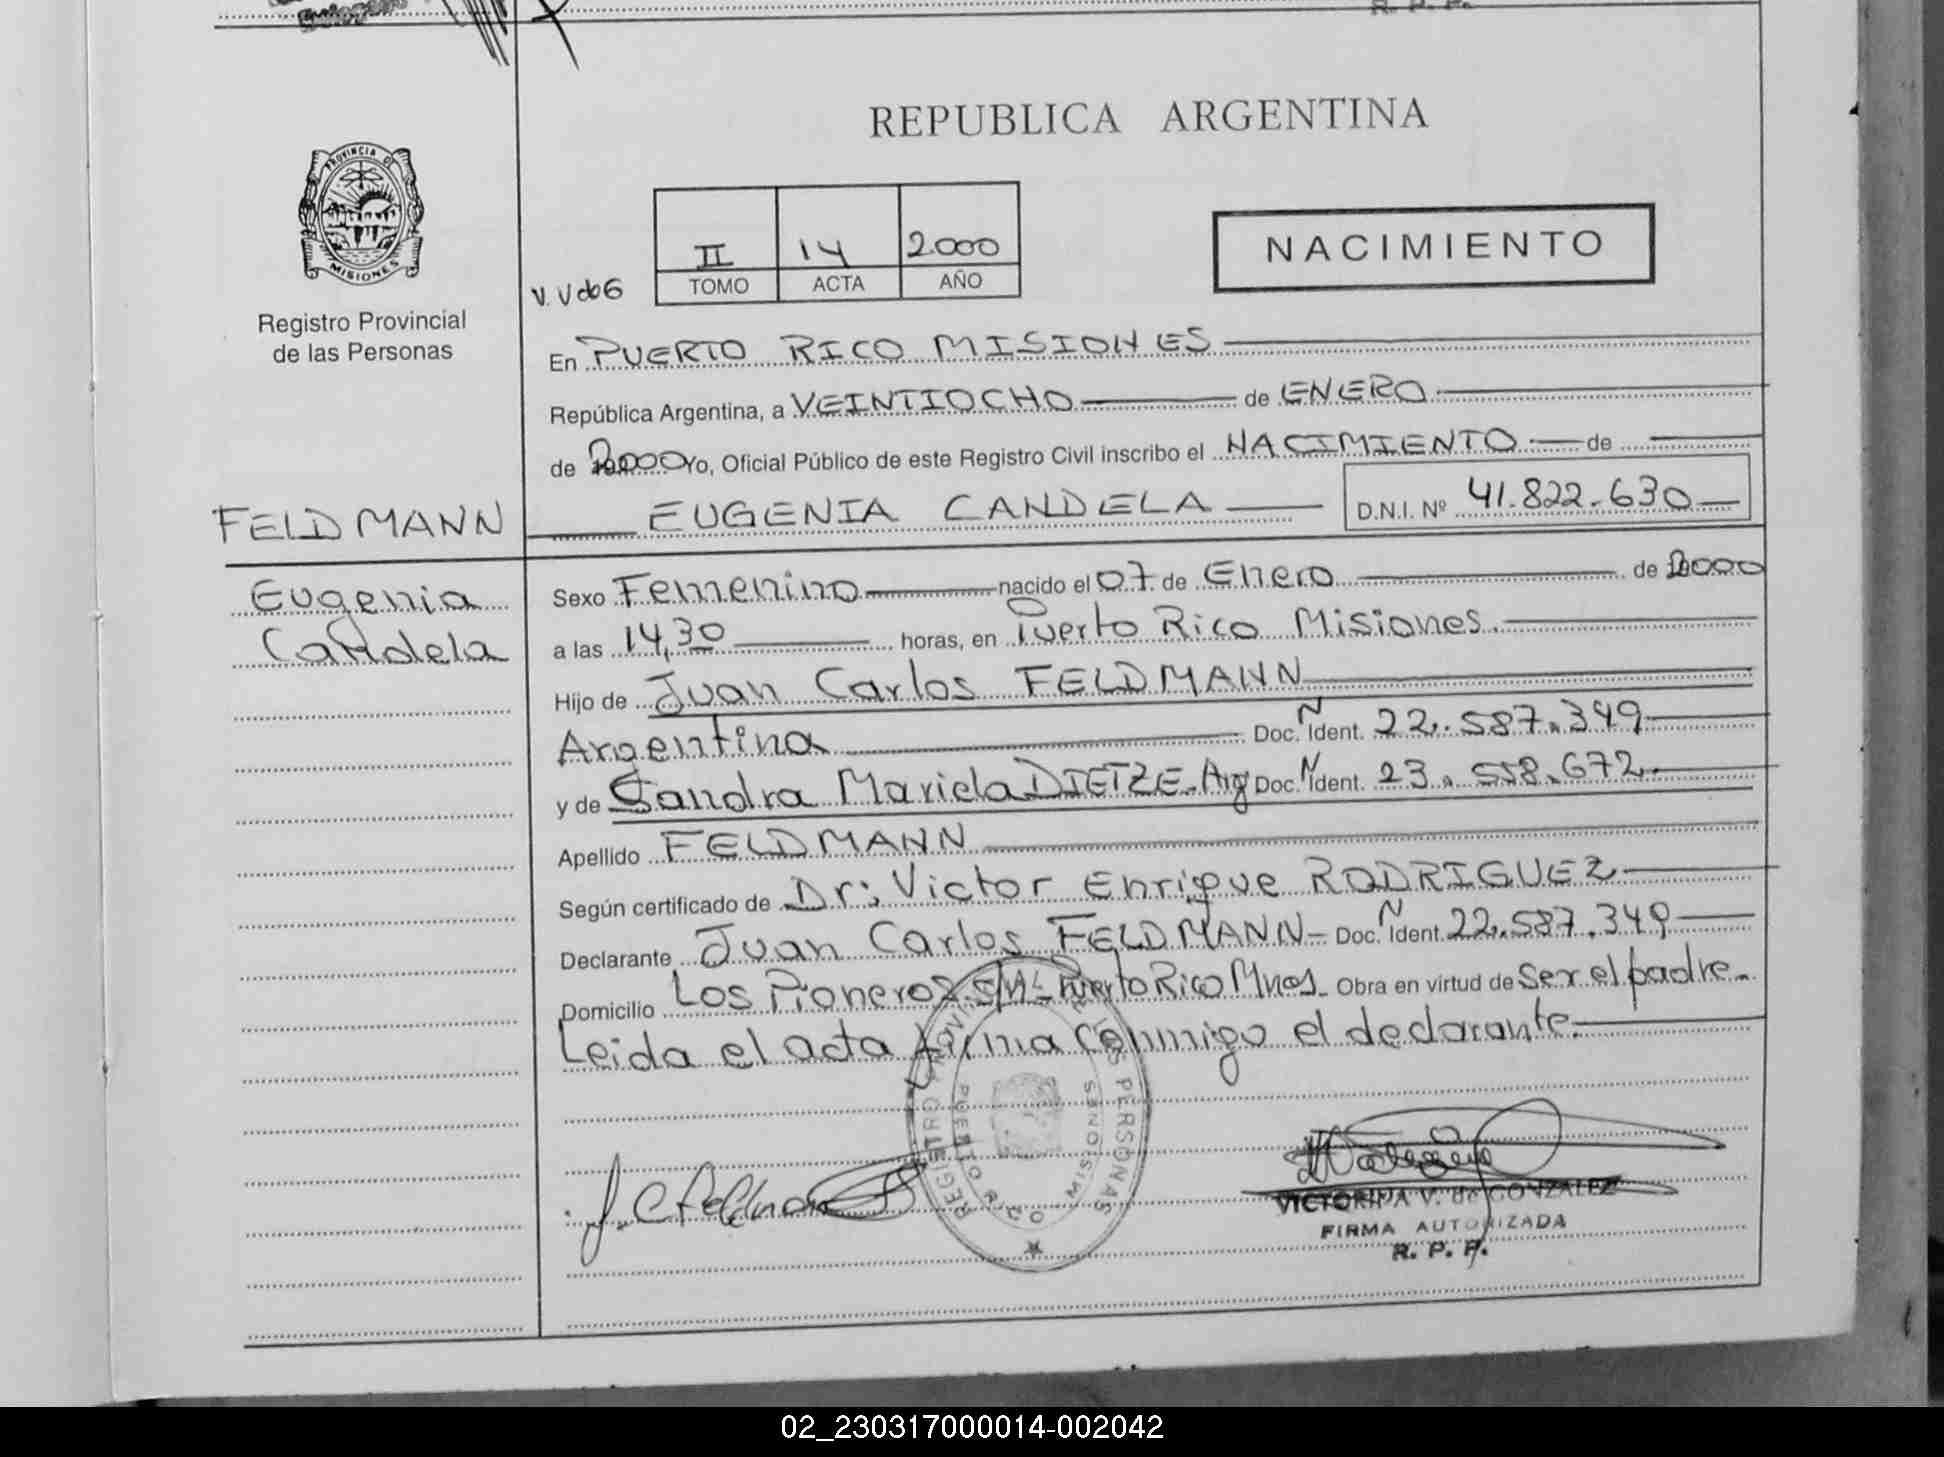 R. P. P.
REPUBLICA ARGENTINA
PROVINCIA DE
MISIONES
Registro Provincial
de las Personas
II 14 2000
TOMO ACTA AÑO
NACIMIENTO
En PUERTO RICO MISIONES
República Argentina, a VEINTIOCHO de ENERO
de 2000 Yo, Oficial Público de este Registro Civil inscribo el NACIMIENTO de
FELDMANN
EUGENIA CANDELA D.N.I. Nº 41.822.630
Eugenia
Candela
Sexo Femenino nacido el 07 de Enero de 2000
a las 14,30 horas, en Puerto Rico Misiones.
Hijo de Juan Carlos FELDMANN
Argentina Doc. N Ident. 22.587.349
y de Sandra Mariela DIETZE. Arg Doc. N Ident. 23.558.672.
Apellido FELDMANN
Según certificado de Dr: Victor Enrique RODRIGUEZ
Declarante Juan Carlos FELDMANN- Doc. N Ident. 22.587.349
Domicilio Los Pioneros S/N- Puerto Rico Mnes. Obra en virtud de Ser el padre.
Leida el acta firma conmigo el declarante.
REGISTRO PROVINCIAL DE LAS PERSONAS
PUERTO RICO MISIONES
J. C Feldman
VICTORINA V. de GONZALEZ
FIRMA AUTORIZADA
R. P. P.
02_230317000014-002042